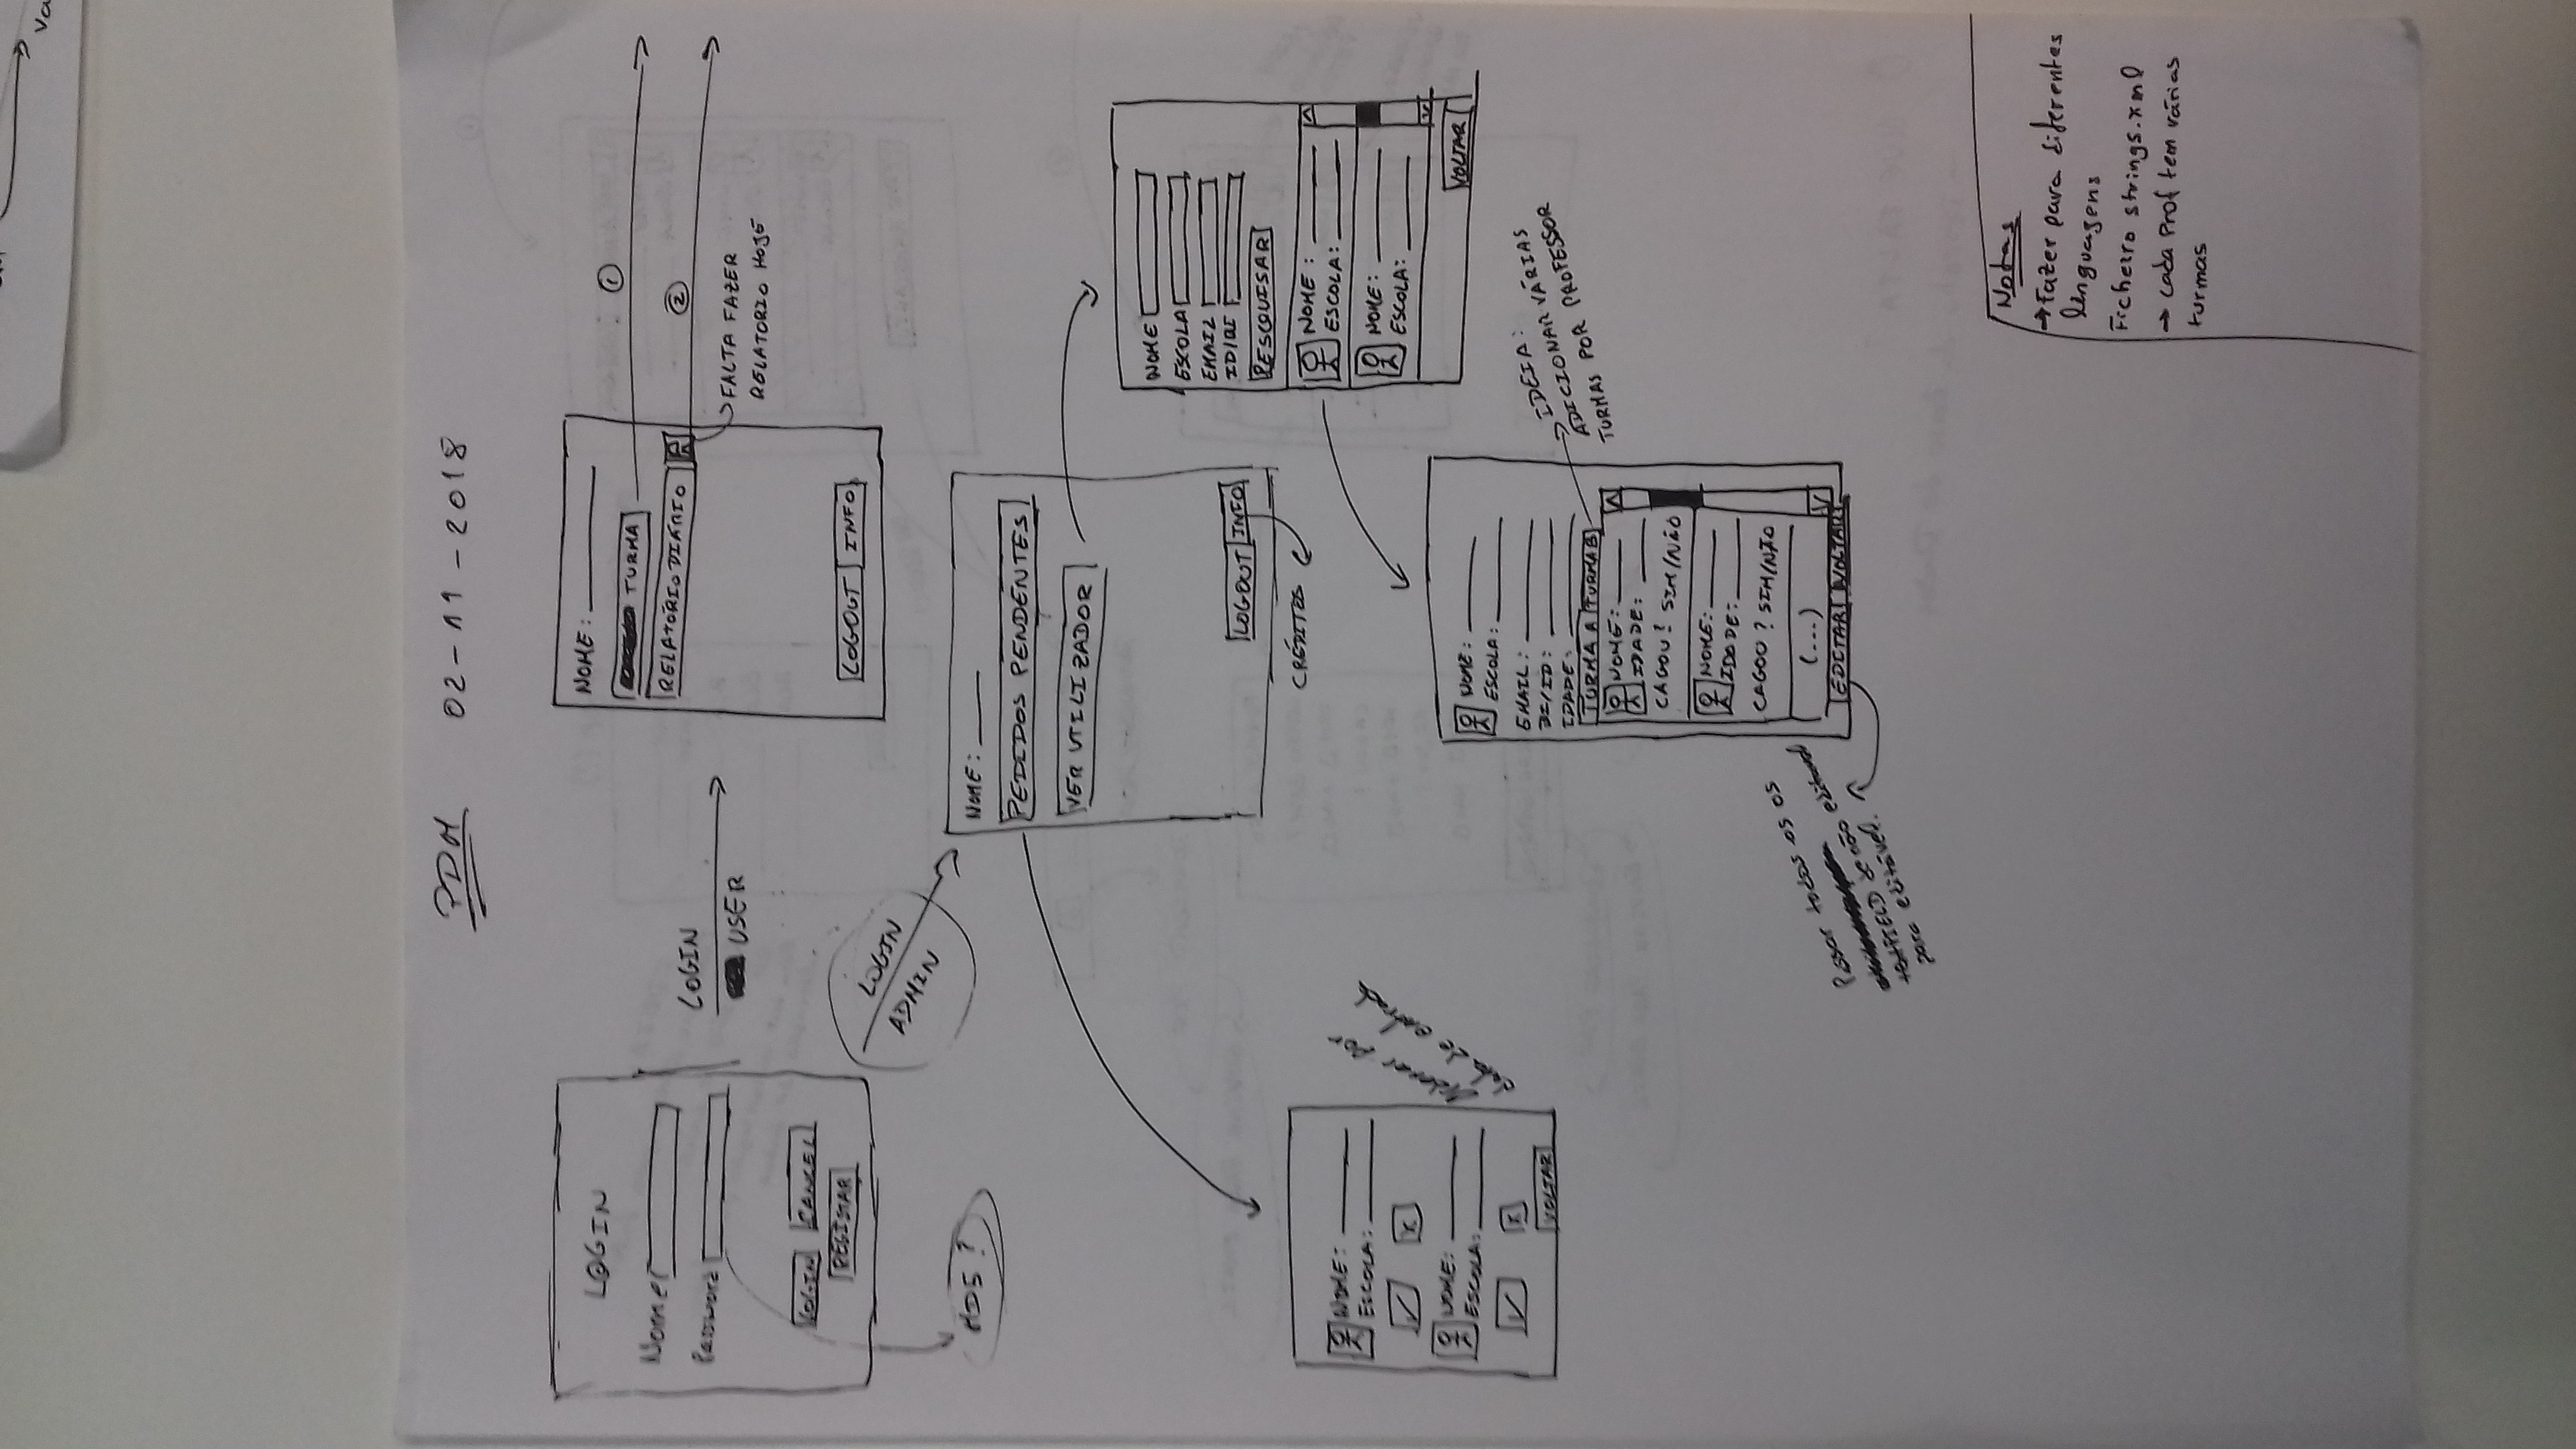 PDM 02-11-2018
LOGIN
Nome
Password
LOGIN CANCEL
REGISTAR
MD5 ?
LOGIN
USER
LOGIN
ADMIN
NOME:
TURMA
RELATÓRIO DIÁRIO
LOGOUT INFO
①
②
FALTA FAZER
RELATORIO HOJE
NOME:
PEDIDOS PENDENTES
VER UTILIZADOR
LOGOUT INFO
CRÉDITOS
NOME
ESCOLA
EMAIL
ID/BI
PESQUISAR
NOME :
ESCOLA:
NOME :
ESCOLA:
VOLTAR
NOME:
ESCOLA:
✓ x
NOME:
ESCOLA:
✓ x
VOLTAR
Ordenar por
data de entrada
NOME:
ESCOLA:
EMAIL:
BI/ID:
IDADE:
TURMA A TURMA B
NOME:
IDADE:
CAGOU? SIM/NÃO
NOME:
IDADE:
CAGOU? SIM/NÃO
(...)
EDITAR VOLTAR
IDEIA:
ADICIONAR VÁRIAS
TURMAS POR PROFESSOR
Passar todos os os
de não editavel
para editável.
Notas
→ Fazer para diferentes
linguagens
Ficheiro strings.xml
→ cada Prof tem várias
turmas